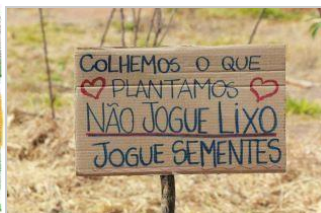 COLHEMOS O QUE
PLANTAMOS
NÃO JOGUE LIXO
JOGUE SEMENTES